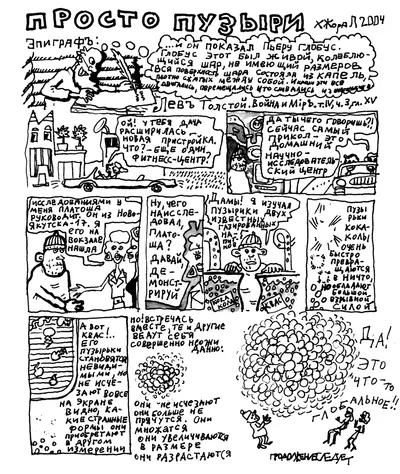 ПРОСТО ПУЗЫРИ
ХЖОРА Л 2004
ЭПИГРАФЪ:
...И ОН ПОКАЗАЛ ПЬЕРУ ГЛОБУС.
ГЛОБУС ЭТОТ БЫЛ ЖИВОЙ, КОЛЕБЛЮ-
ЩИЙСЯ ШАР, НЕ ИМЕЮЩИЙ РАЗМЕРОВ.
ВСЯ ПОВЕРХНОСТЬ ШАРА СОСТОЯЛА ИЗ КАПЕЛЬ,
ПЛОТНО СЖАТЫХ МЕЖДУ СОБОЙ. И КАПЛИ ЭТИ ВСЕ
ДВИГАЛИСЬ, ПЕРЕМЕЩАЛИСЬ И ТО СЛИВАЛИСЬ ИЗ
ЛЕВЪ ТОЛСТОЙ. ВОЙНА И МIРЪ, т.IV, ч.3, гл. XV
ОЙ! У ТЕБЯ ДАЧА
РАСШИРИЛАСЬ -
НОВАЯ ПРИСТРОЙКА,
ЧТО? - ЕЩЕ ОДИН
ФИТНЕСС-ЦЕНТР?
ДА ТЫ ЧЕГО ГОВОРИШЬ?!
СЕЙЧАС САМЫЙ
ПРИКОЛ - ЭТО
ДОМАШНИЙ
НАУЧНО-
ИССЛЕДОВАТЕЛЬ-
СКИЙ ЦЕНТР
ИССЛЕДОВАНИЯМИ У
МЕНЯ ПЛАТОША
РУКОВОДИТ. ОН ИЗ НОВО-
ЯКУТСКА-19. Я
ЕГО НА
ВОКЗАЛЕ
НАШЛА
НУ, ЧЕГО
НАИССЛЕ-
ДОВАЛ,
ПЛАТО-
ША?
ДАВАЙ
ДЕ-
МОНСТ-
РИРУЙ
ДАМЫ! Я ИЗУЧАЛ
ПУЗЫРЬКИ ДВУХ
ИЗВЕСТНЫХ
ГАЗИРОВАННЫХ
НАПИТ-
КОВ
КВАС
ПУЗЫ-
РЬКИ
КОКА-
КОЛЫ
ОЧЕНЬ
БЫСТРО
ПРЕВРА-
ЩАЮТСЯ
В НИЧТО,
НО ОБЛАДАЮТ
БОЛЬШОЙ
ВЗРЫВНОЙ
СИЛОЙ
А ВОТ
КВАС!..
ЕГО
ПУЗЫРЬКИ
СТАНОВЯТСЯ
НЕВИДИ-
МЫМИ, НО
НЕ ИСЧЕ-
ЗАЮТ ВОВСЕ
НА ЭКРАНЕ
ВИДНО, КА-
КИЕ СТРАННЫЕ
ФОРМЫ ОНИ
ПРИОБРЕТАЮТ
В ДРУГОМ
ИЗМЕРЕНИИ
НО! ВСТРЕЧАСЬ
ВМЕСТЕ, ТЕ И ДРУГИЕ
ВЕДУТ СЕБЯ
СОВЕРШЕННО НЕОЖИ
ДАННО:
ОНИ НЕ ИСЧЕЗАЮТ
ОНИ БОЛЬШЕ НЕ
ПРЯЧУТСЯ. ОНИ
МНОЖАТСЯ
ОНИ УВЕЛИЧИВАЮТСЯ
В РАЗМЕРЕ
ОНИ РАЗРАСТАЮТСЯ
ДА!
ЭТО
ЧТО-ТО
ГЛОБАЛЬНОЕ!!
ПРОДОЛЖЕНИЕ СЛЕДУЕТ